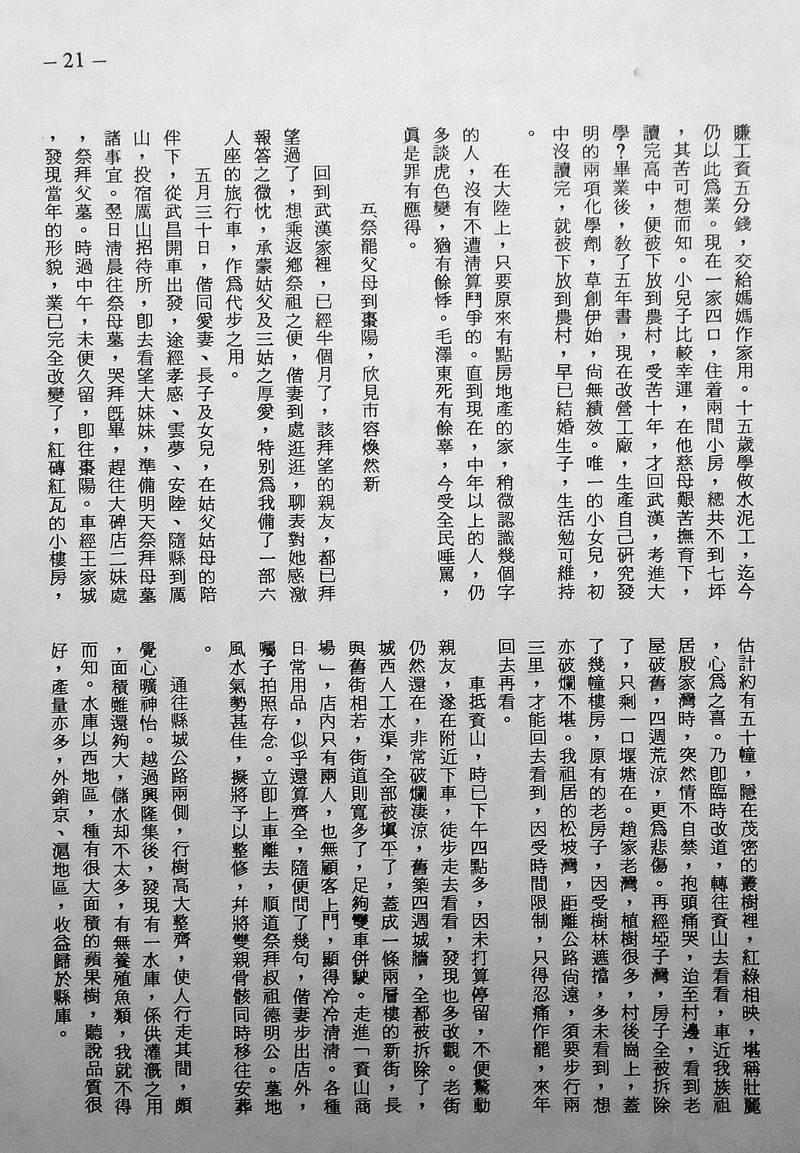 — 21 —
賺工資五分錢，交給媽媽作家用。十五歲學做水泥工，迄今
仍以此為業。現在一家四口，住着兩間小房，總共不到七坪
，其苦可想而知。小兒子比較幸運，在他慈母艱苦撫育下，
讀完高中，便被下放到農村，受苦十年，才回武漢，考進大
學？畢業後，教了五年書，現在改營工廠，生產自己研究發
明的兩項化學劑，草創伊始，尚無績效。唯一的小女兒，初
中沒讀完，就被下放到農村，早已結婚生子，生活勉可維持
。
在大陸上，只要原來有點房地產的家，稍微認識幾個字
的人，沒有不遭清算鬥爭的。直到現在，中年以上的人，仍
多談虎色變，猶有餘悸。毛澤東死有餘辜，今受全民唾罵，
眞是罪有應得。
五、祭罷父母到棗陽，欣見市容煥然新
回到武漢家裡，已經半個月了，該拜望的親友，都已拜
望過了，想乘返鄉祭祖之便，偕妻到處逛逛，聊表對她感激
報答之微忱，承蒙姑父及三姑之厚愛，特別為我備了一部六
人座的旅行車，作為代步之用。
五月三十日，偕同愛妻、長子及女兒，在姑父姑母的陪
伴下，從武昌開車出發，途經孝感、雲夢、安陸、隨縣到厲
山，投宿厲山招待所，卽去看望大妹妹，準備明天祭拜母墓
諸事宜。翌日清晨往祭母墓，哭拜旣畢，趕往大碑店二妹處
，祭拜父墓。時過中午，未便久留，卽往棗陽。車經王家城
，發現當年的形貌，業已完全改變了，紅磚紅瓦的小樓房，
估計約有五十幢，隱在茂密的叢樹裡，紅綠相映，堪稱壯麗
，心為之喜。乃卽臨時改道，轉往資山去看看，車近我族祖
居殷家灣時，突然情不自禁，抱頭痛哭，迨至村邊，看到老
屋破舊，四週荒涼，更為悲傷。再經埡子灣，房子全被拆除
了，只剩一口堰塘在。趙家老灣，植樹很多，村後崗上，蓋
了幾幢樓房，原有的老房子，因受樹林遮擋，多未看到，想
亦破爛不堪。我祖居的松坡灣，距離公路尚遠，須要步行兩
三里，才能回去看到，因受時間限制，只得忍痛作罷，來年
回去再看。
車抵資山，時已下午四點多，因未打算停留，不便驚動
親友，遂在附近下車，徒步走去看看，發現也多改觀。老街
仍然還在，非常破爛淒涼，舊築四週城牆，全都被拆除了，
城西人工水渠，全部被塡平了，蓋成一條兩層樓的新街，長
與舊街相若，街道則寬多了，足夠雙車併駛。走進「資山商
場」，店內只有兩人，也無顧客上門，顯得冷冷清清。各種
日常用品，似乎還算齊全，隨便問了幾句，偕妻步出店外，
囑子拍照存念。立卽上車離去，順道祭拜叔祖德明公。墓地
風水氣勢甚佳，擬將予以整修，幷將雙親骨骸同時移往安葬
。
通往縣城公路兩側，行樹高大整齊，使人行走其間，頗
覺心曠神怡。越過興隆集後，發現有一水庫，係供灌溉之用
，面積雖還夠大，儲水却不太多，有無養殖魚類，我就不得
而知。水庫以西地區，種有很大面積的蘋果樹，聽說品質很
好，產量亦多，外銷京、滬地區，收益歸於縣庫。